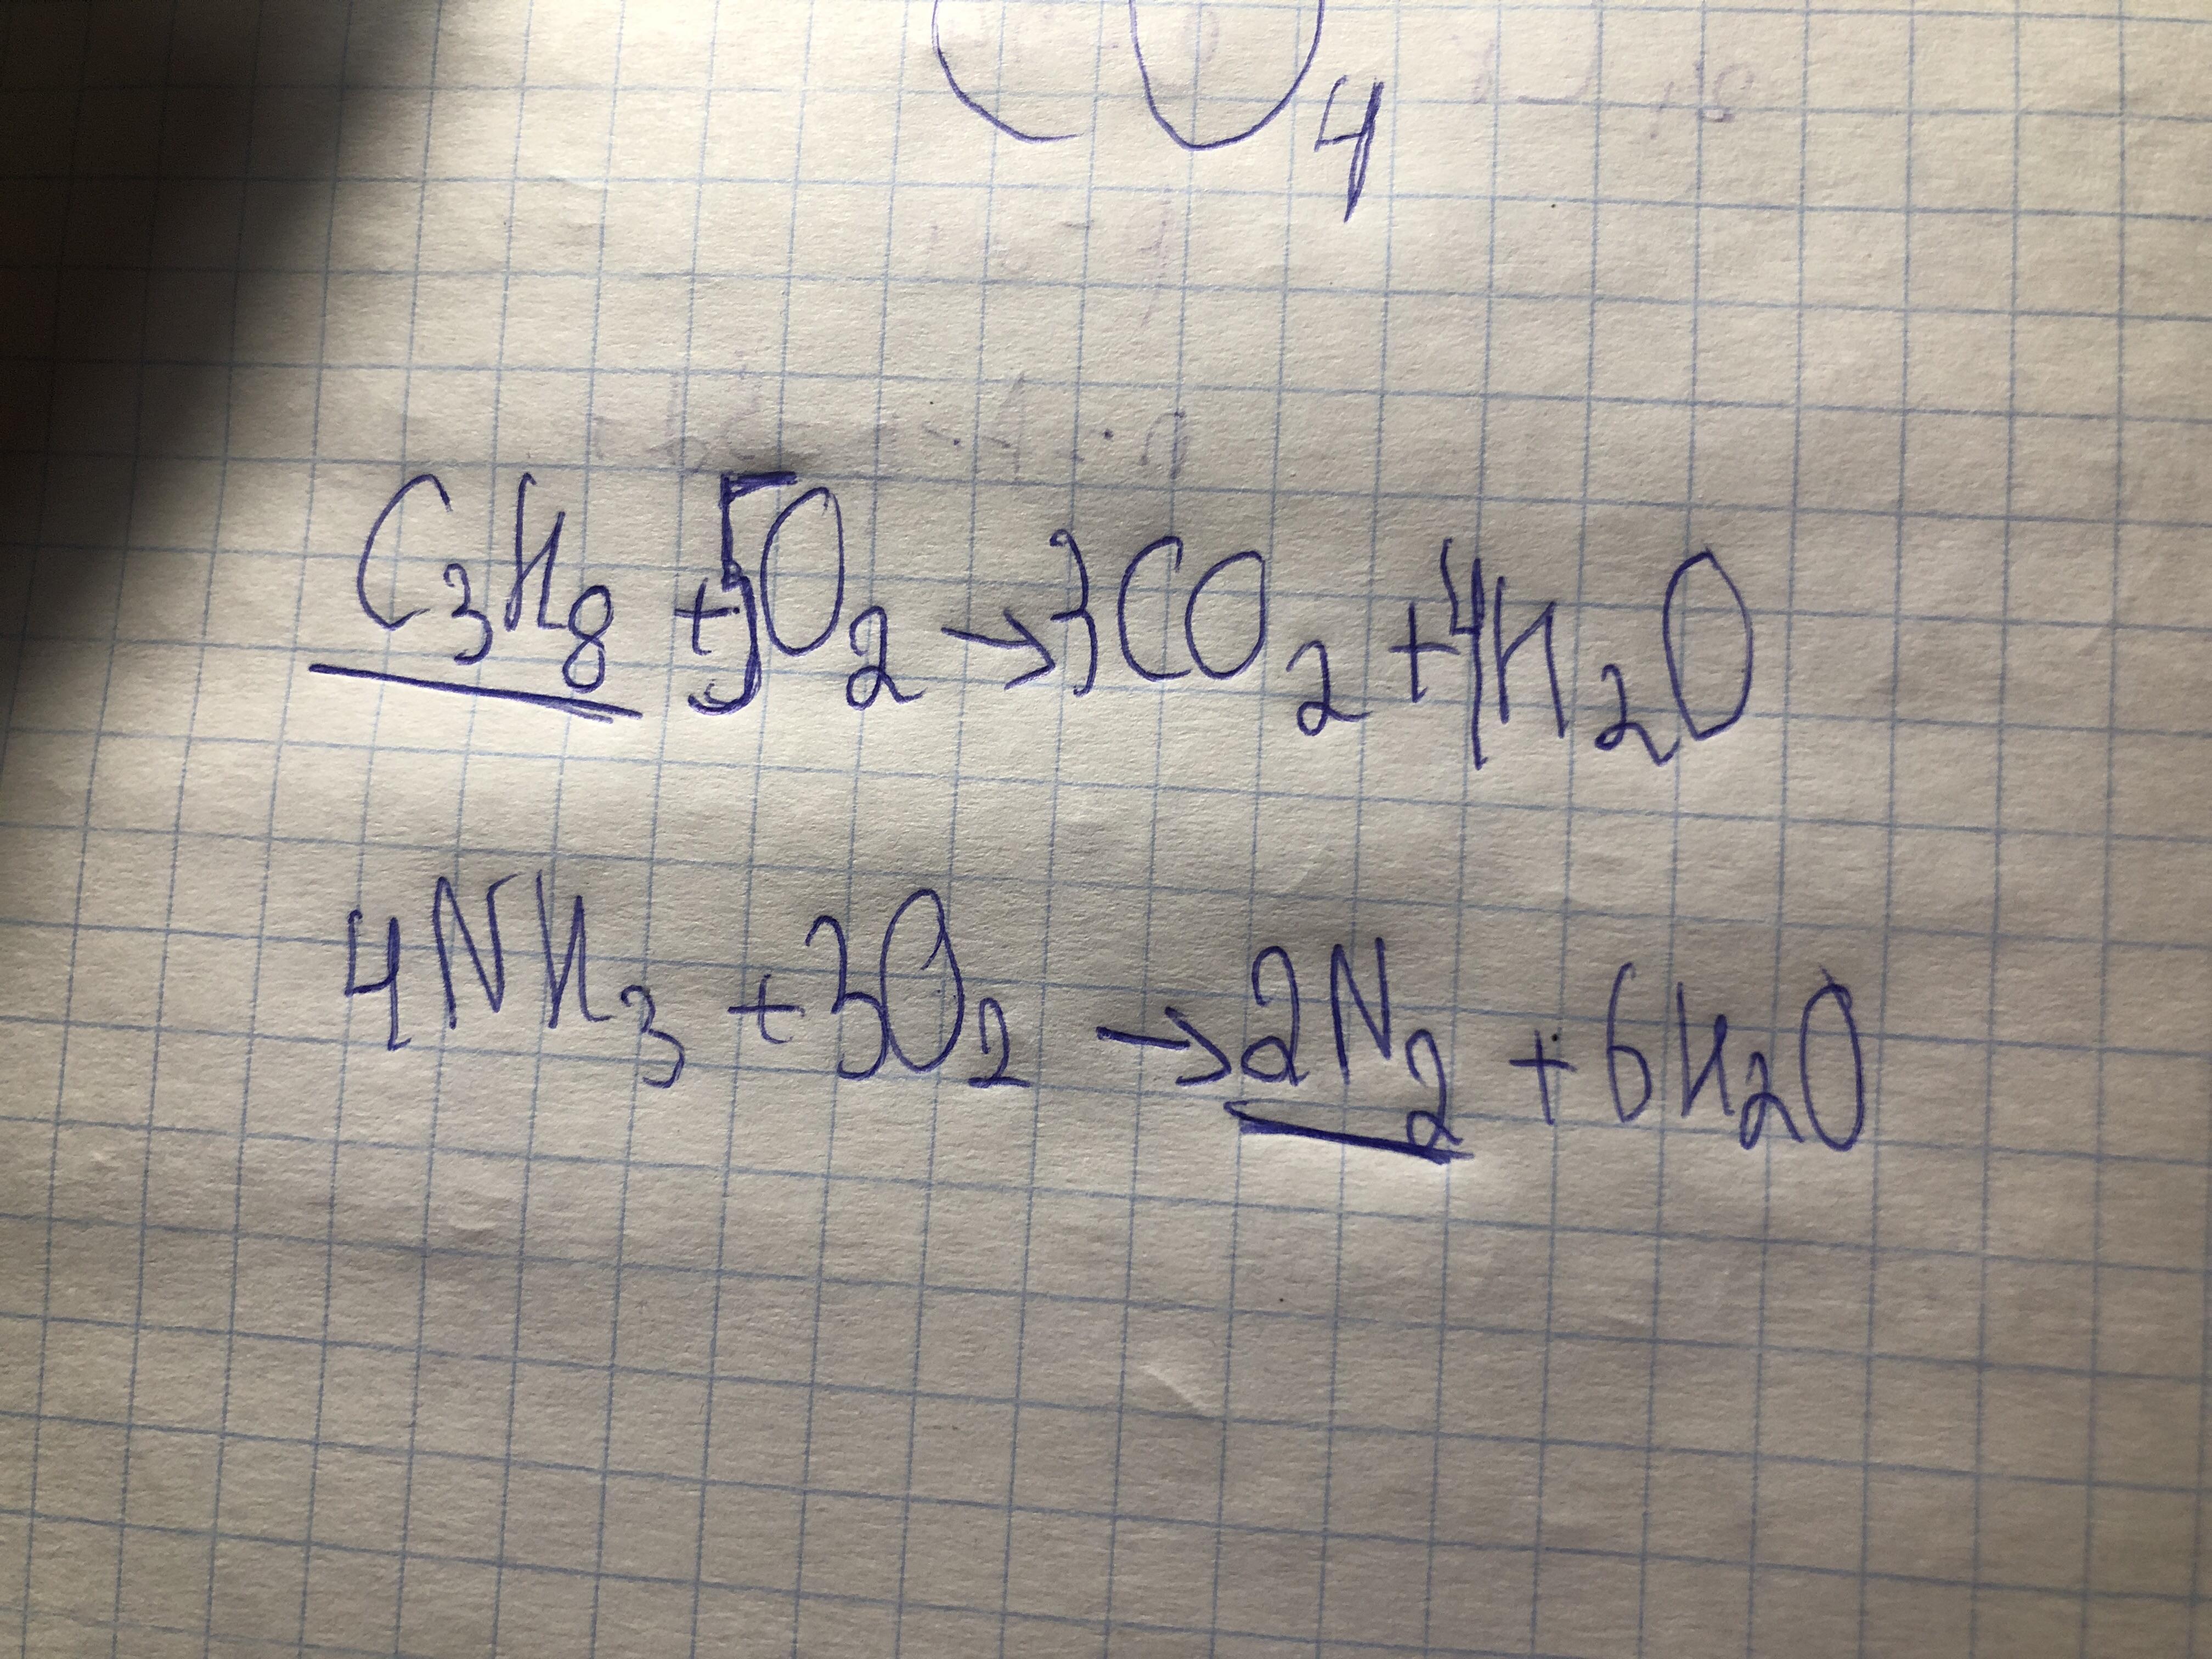 CO₄
C₃H₈ + 5O₂ → 3CO₂ + 4H₂O
4NH₃ + 3O₂ → 2N₂ + 6H₂O